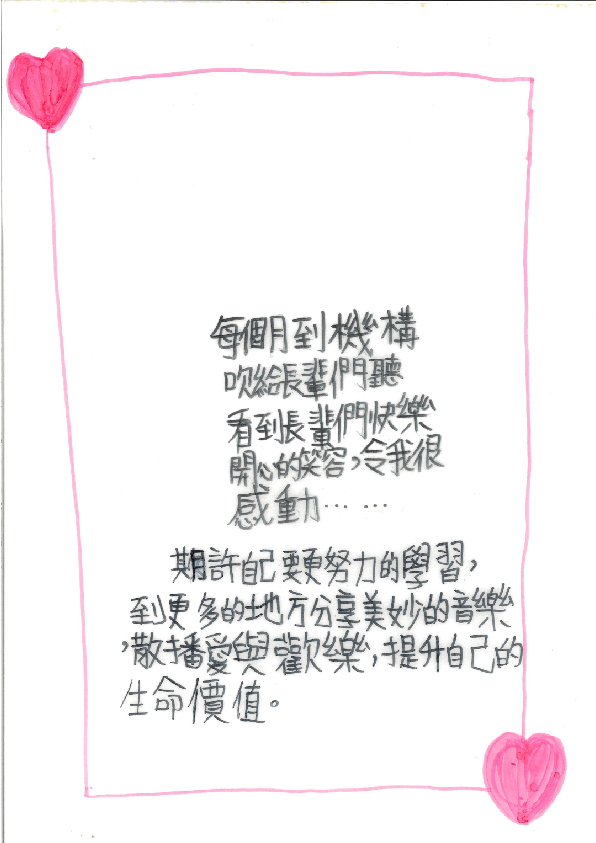 每個月到機構
吹給長輩們聽
看到長輩們快樂
開心的笑容，令我很
感動……
期許自己要更努力的學習，
到更多的地方分享美妙的音樂
，散播愛與歡樂，提升自己的
生命價值。